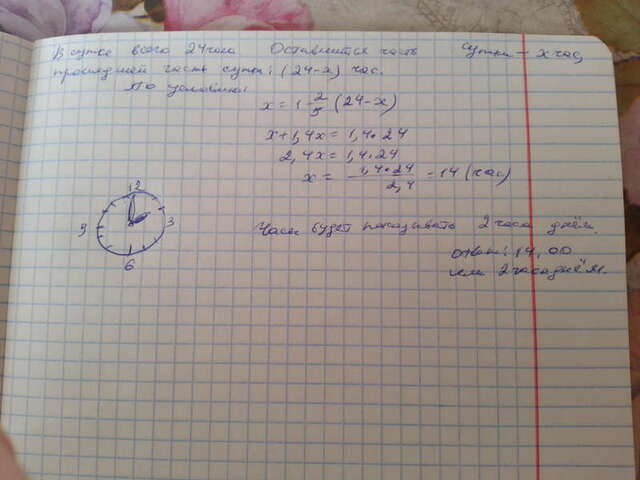 В сутке всего 24 часа Оставшиеся часть сутки - x час,
прошедшей часть суты: (24-x) час.
По условию:
x = 1 2/5 (24-x)
x+1,4x = 1,4·24
2,4x = 1,4·24
x = 1,4·24/2,4 = 14 (час)
12
9 3
6
Часы будет показывать 2 часа днём.
ответ: 14,00
или 2 часа днём.